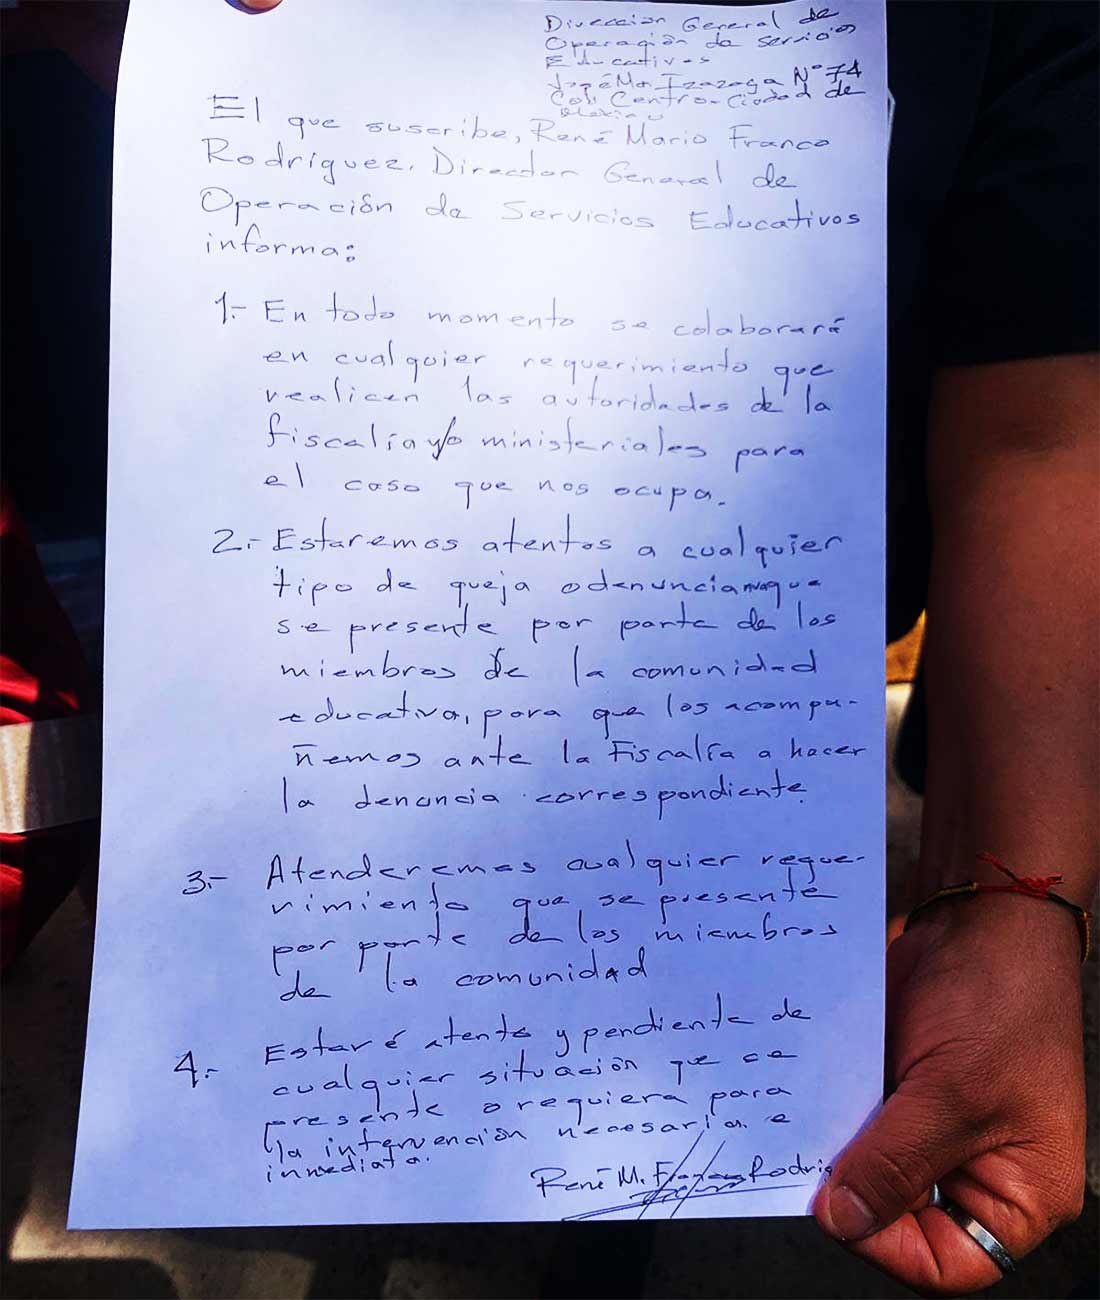 Dirección General de
Operación de Servicios
Educativos
José Ma Izazaga N° 74
Col. Centro-Ciudad de
México
El que suscribe, René Mario Franco
Rodriguez, Director General de
Operación de Servicios Educativos
informa:
1.- En todo momento se colaborará
en cualquier requerimiento que
realicen las autoridades de la
fiscalía y/o ministeriales para
el caso que nos ocupa.
2.- Estaremos atentos a cualquier
tipo de queja o denuncia que
se presente por parte de los
miembros de la comunidad
educativa, para que los acompa-
ñemos ante la Fiscalía a hacer
la denuncia correspondiente.
3.- Atenderemos cualquier reque-
rimiento que se presente
por parte de los miembros
de la comunidad
4.- Estaré atento y pendiente de
cualquier situación que se
presente o requiera para
la intervención necesaria e
inmediata.
René M. Franco Rodrig